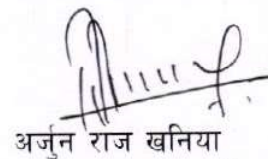 अर्जुन राज खनिया